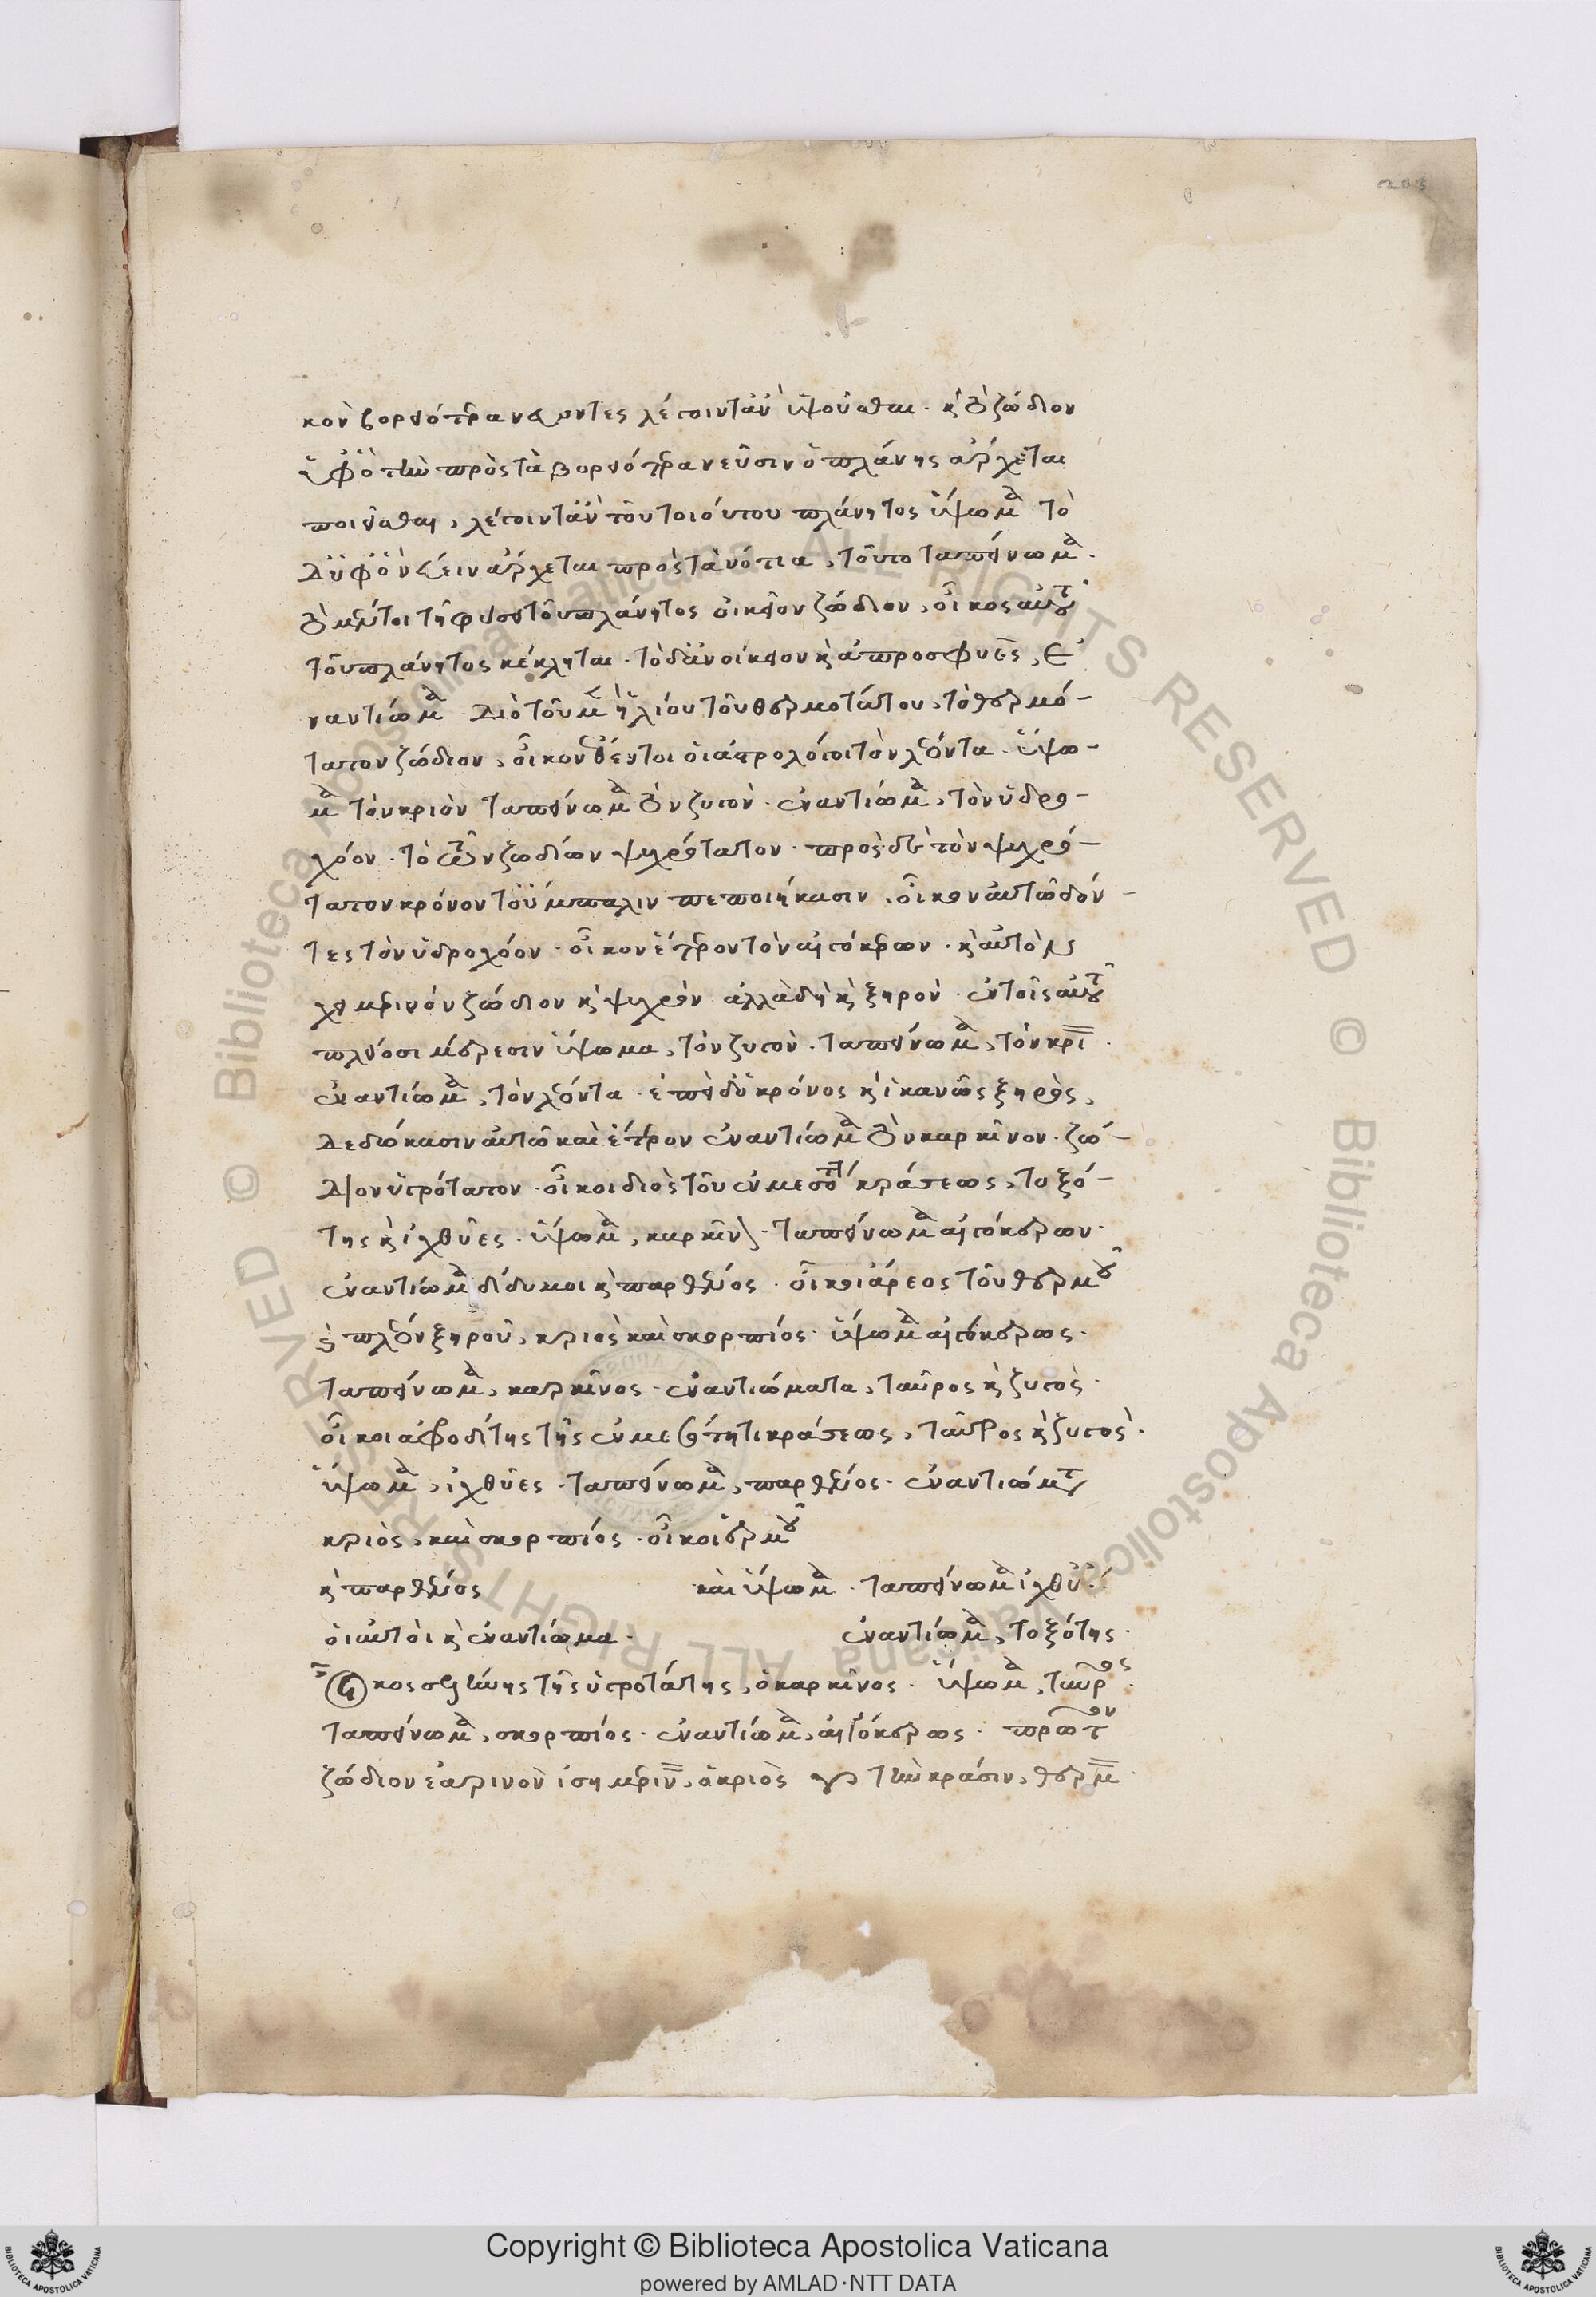 κον βορειότερα νεύοντες λέγοιντ' ἂν ὑψοῦσθαι. κ τὸ ζώδιον
ἀφ' οὗ τὴν πρὸς τὰ βορειότερα νεῦσιν ὁ πλάνης ἄρχεται
ποιεῖσθαι, λέγοιτ' ἂν τοῦ τοιούτου πλάνητος ὕψωμα τὸ
δ' ἀφ' οὗ νεύειν ἄρχεται πρὸς τὰ νότια, τοῦτο ταπείνωμα.
τὸ μέντοι τῇ φύσει τοῦ πλάνητος οἰκεῖον ζώδιον, οἶκος αὐτοῦ
τοῦ πλάνητος κέκληται. τὸ δ' ἀνοίκειον κ ἀπροσφυὲς, ἐ
ναντίωμα. διὸ τοῦ μὲν ἡλίου τοῦ θερμοτάτου, τὸ θερμό-
τατον ζώδιον, οἶκον θέντοι οἱ ἀστρολόγοι τὸν λέοντα. ὕψω-
μα τὸν κριὸν ταπείνωμα τὸν ζυγόν. ἐναντίωμα, τὸν ὑδρο-
χόον. τὸ τῶν ζωδίων ψυχρότατον. πρὸς δὲ τὸν ψυχρό-
τατον κρόνον τοὔμπαλιν πεποιήκασιν. οἶκον αὐτῶ δόν-
τες τὸν ὑδροχόον. οἶκον ἕτερον τὸν αἰγόκερων. κ αὐτὸ μὲν
χειμερινὸν ζώδιον κ ψυχρὸν ἀλλὰ δὴ κ ξηρὸν. ἐν τοῖς αὐτοῦ
πλείοσι μέρεσιν ὕψωμα, τὸν ζυγόν. ταπείνωμα, τὸν κρι.
ἐναντίωμα, τὸν λέοντα. ἐπεὶ δὲ κρόνος κ ἱκανῶς ξηρὸς,
δεδώκασιν αὐτῶ καὶ ἕτερον ἐναντίωμα τὸν καρκῖνον. ζώ-
διον ὑγρότατον. οἶκοι διὸς τοῦ ἐν μεσότητι κράσεως, τοξό-
της κ ἰχθύες. ὕψωμα, καρκῖνος. ταπείνωμα αἰγόκερων.
ἐναντίωμα δίδυμοι κ παρθένος. οἶκοι ἄρεος τοῦ θερμοῦ
ἐπὶ πλέον ξηροῦ, κριὸς καὶ σκορπίος. ὕψωμα αἰγόκερως.
ταπείνωμα, καρκῖνος. ἐναντιώματα, ταῦρος κ ζυγὸς.
οἶκοι ἀφροδίτης τῆς ἐν μεσότητι κράσεως, ταῦρος κ ζυγὸς.
ὕψωμα, ἰχθύες. ταπείνωμα, παρθένος. ἐναντιώματα
κριὸς, καὶ σκορπίος. οἶκοι ἑρμοῦ
κ παρθένος καὶ ὕψωμα. ταπείνωμα ἰχθύες
οἱ αὐτοὶ κ ἐναντίωμα. ἐναντίωμα, τοξότης.
οἶκος σελήνης τῆς ὑγροτάτης, ὁ καρκῖνος. ὕψωμα, ταῦρος.
ταπείνωμα, σκορπίος. ἐναντίωμα, αἰγόκερως. πρῶτον
ζώδιον ἐαρινὸν ἰσημεριν, ὁ κριὸς τὴν κρᾶσιν, θερμ